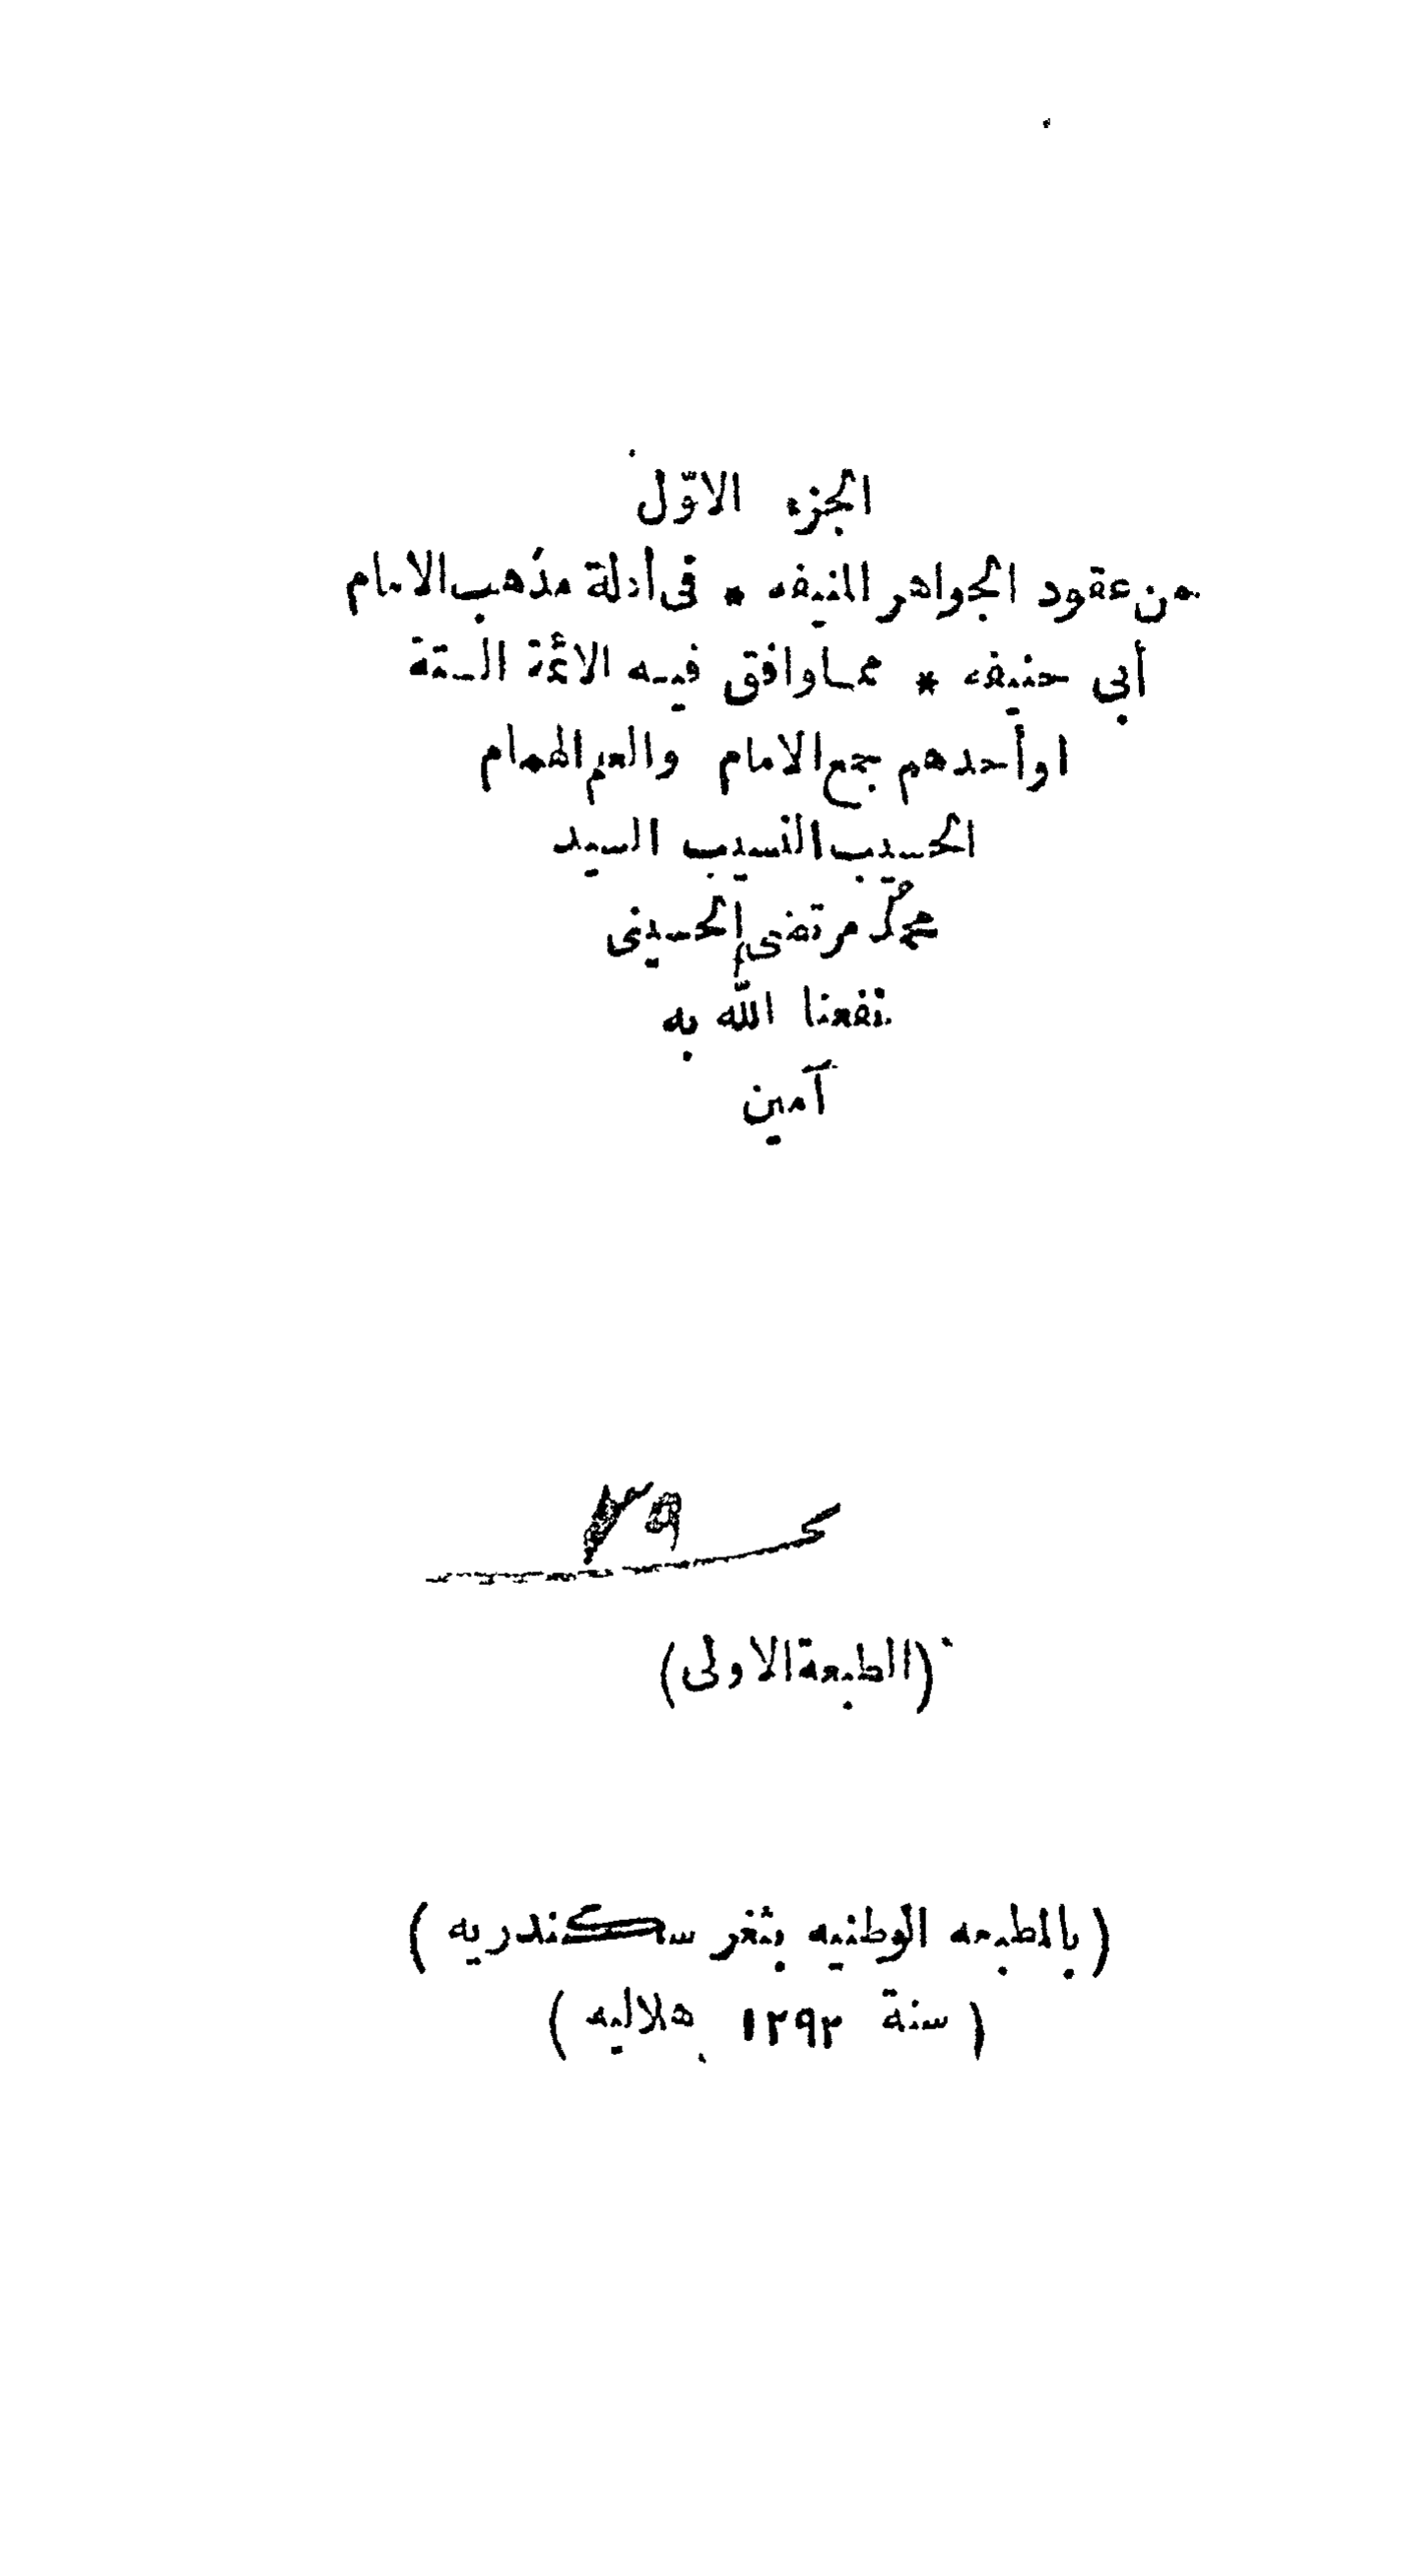 الجزء الاوّل
من عقود الجواهر المنيفه * فى أدلة مذهب الامام
أبي حنيفه * مما وافق فيه الائمة الستة
او أحدهم جمع الامام والعم الهمام
الحسيب النسيب السيد
محمد مرتضى الحسيني
نفعنا الله به
آمين
(الطبعة الاولى)
(بالمطبعه الوطنيه بثغر سكندريه)
(سنة ١٢٩٢ هلاليه)